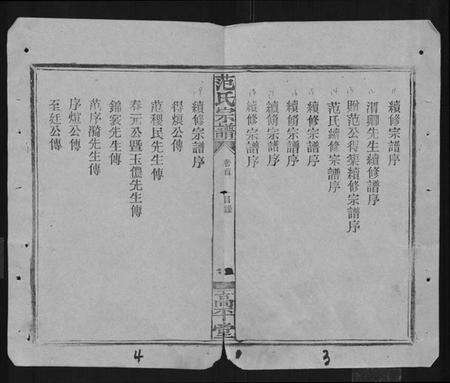 續修宗譜序
渭卿先生續修譜序
贈范公得葉續修宗譜序
范氏續修宗譜序
續修宗譜序
續脩宗譜序
續脩宗譜序
續修宗譜序
范氏宗譜
卷首
目錄
高平堂
續修宗譜序
得煩公傳
范稷民先生傳
春元公暨玉儂先生傳
錦裳先生傳
范序漪先生傳
序煊公傳
至廷公傳
3
4